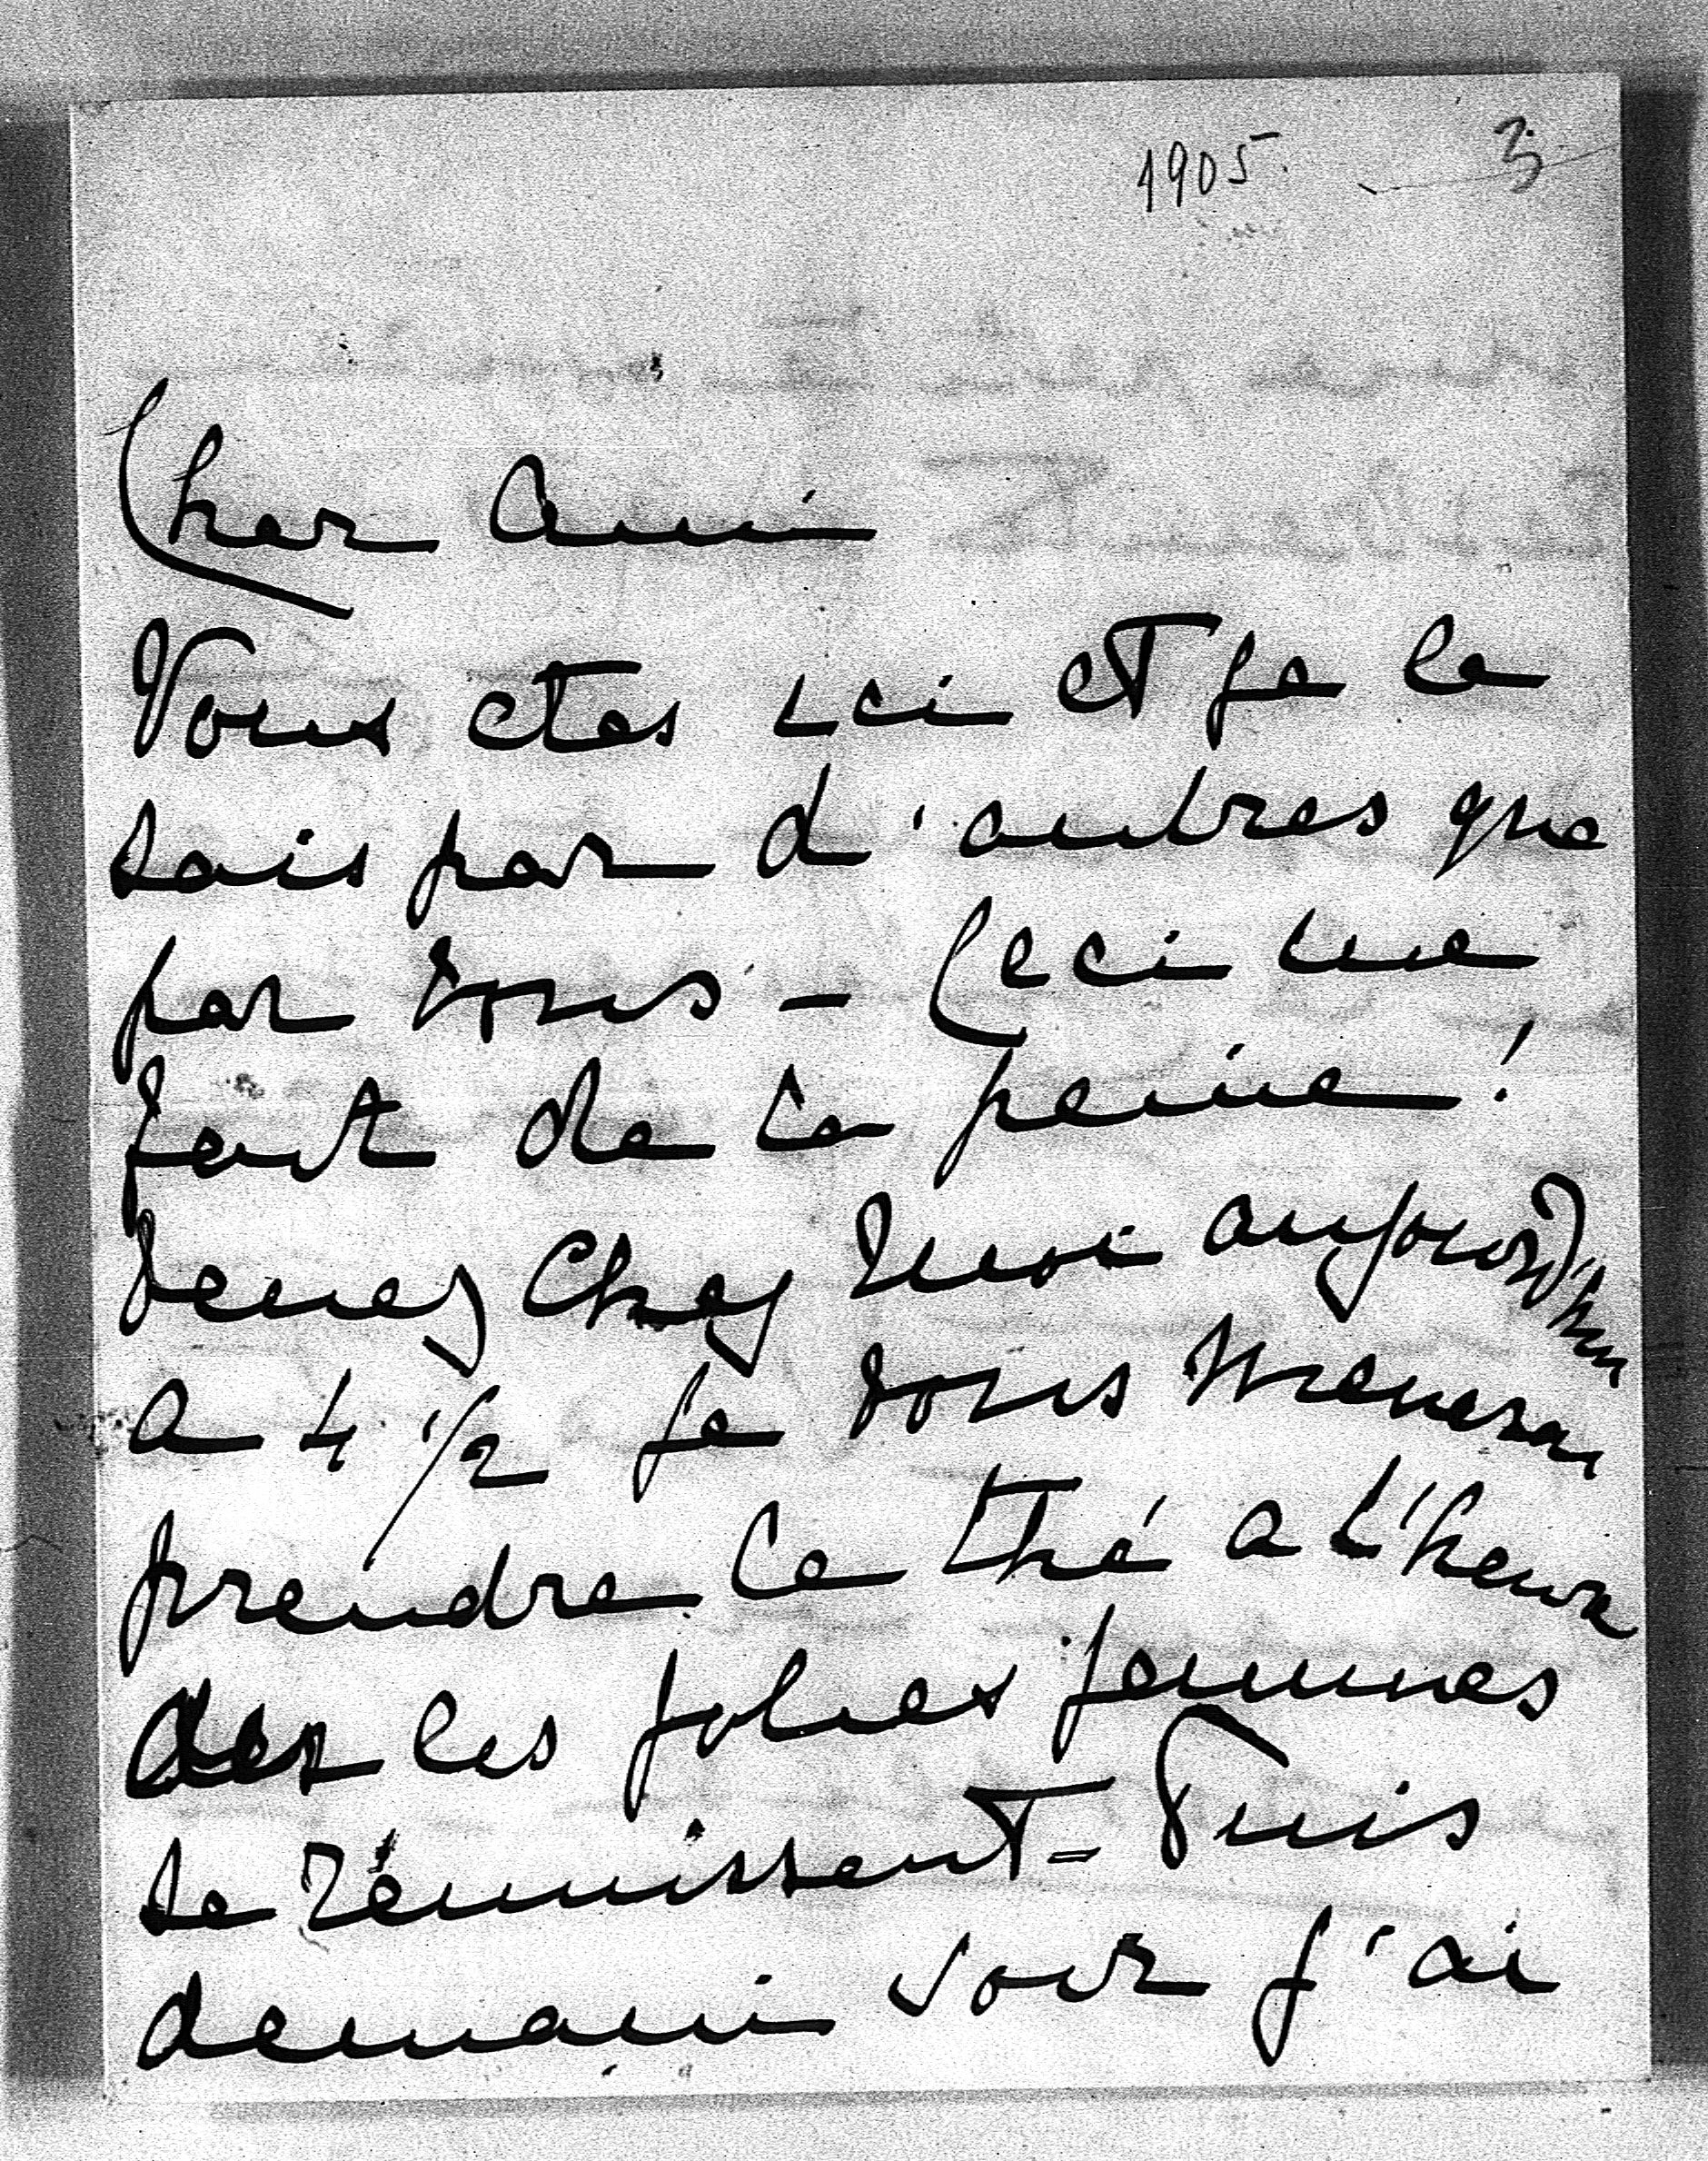 1905. 3
Cher Ami
Vous etes ici et je le
sais par d'autres que
par vous - Ceci me
fait de la peine !
Venez chez moi aujourd'hui
a 4 1/2 je vous menerai
prendre le thé a l'heure
les jolies femmes
se réunissent - Puis
demain soir j'ai